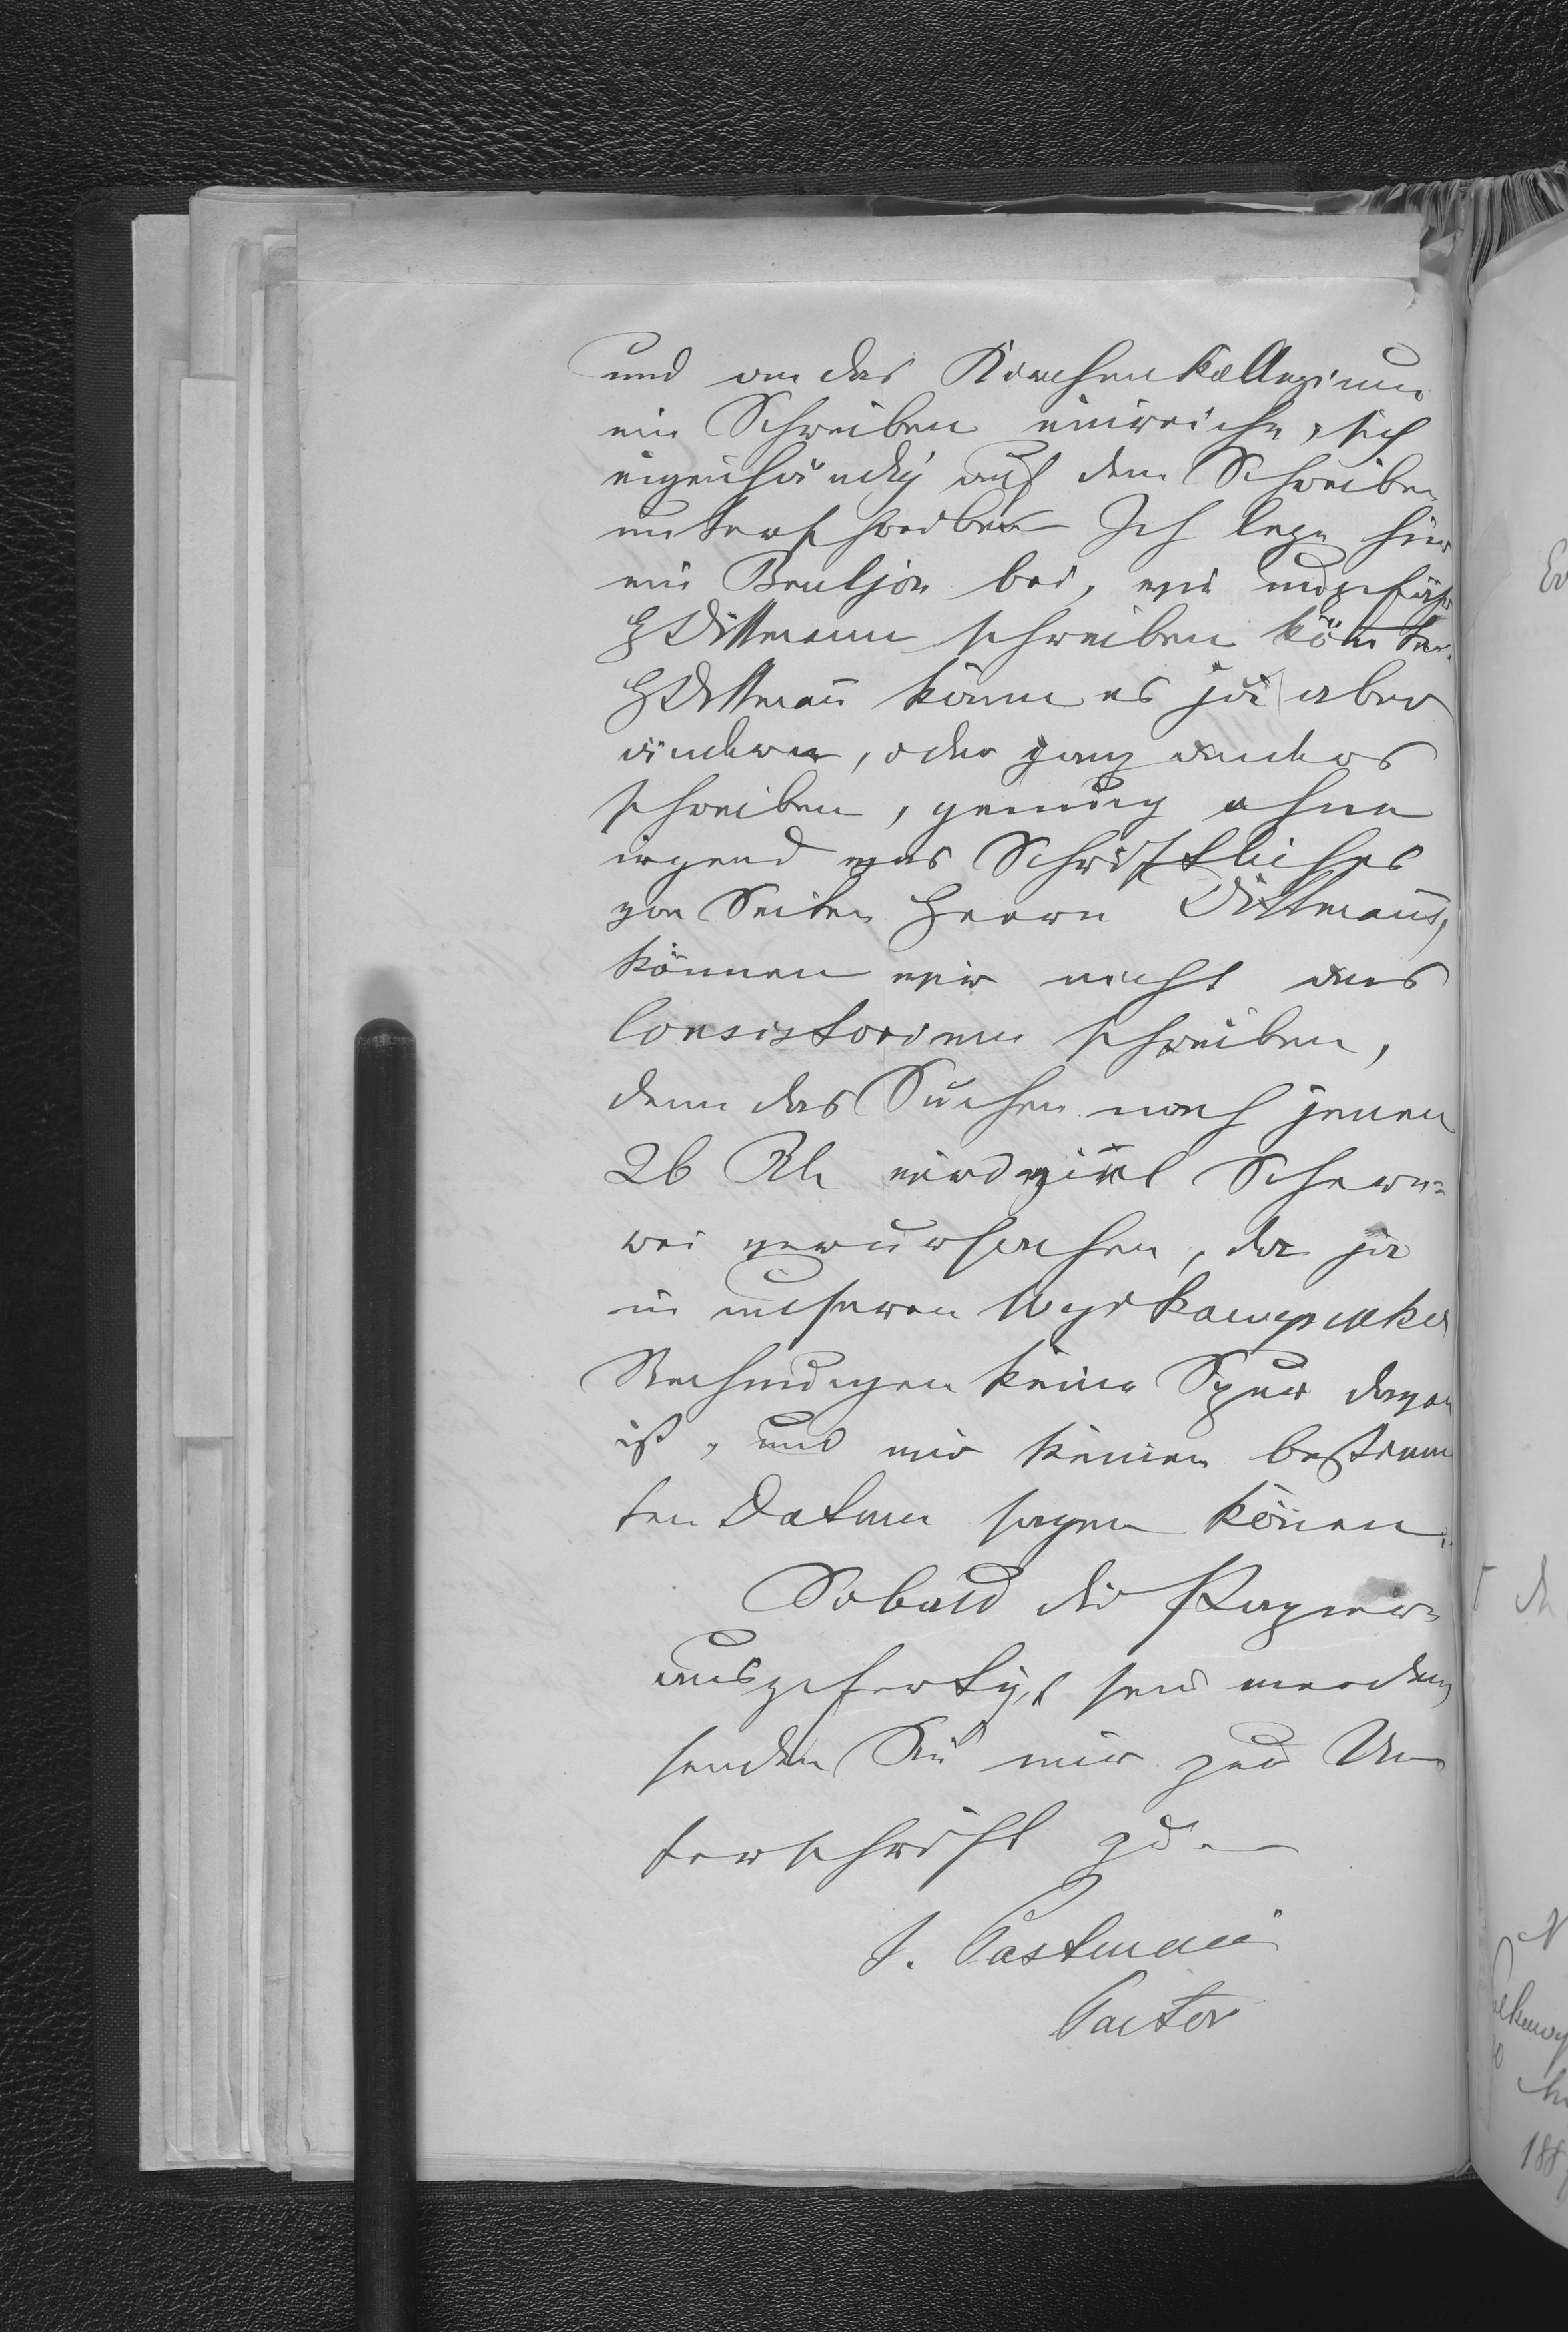 und an das Kirchenkollegium
ein Schreiben einreiche, sich
eigenhändig auf dem Schreiben
unterschreiben Ich lege hier
ein Bruljon bei, wie ungefähr
H Dittmann schreiben könnte.
H Dittmañ kann es ja aber
ändern, oder ganz anders
schreiben, genug ohne
irgend was Schriftliches
von Seiten Herrn Dittmanns,
können wir nicht ans
Consistorium schreiben,
denn das Suchen nach jenen
26 Rbl wird viel Schere-
rei verursachen, da ja
in unseren
Rechnungen keine Spur davon
ist, und wir keinen bestimm
ten Datum sagen können.
Sobald die Papiere
ausgefertigt sein werden
senden Sie mir zur Un
terschrift zu.
J. Pastmañ
Pastor
188